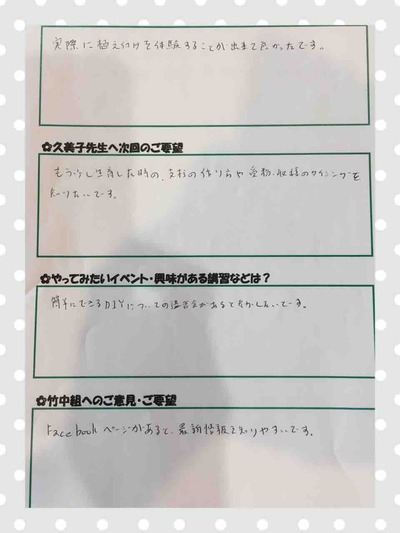 実際に植え付けを体験することが出来て良かったです。
✿久美子先生へ次回のご要望
もう少し生育した時の、支柱の作り方や 受粉、収穫のタイミングを
知りたいです。
✿やってみたいイベント・興味がある講習などは？
簡単にできるDIYについての講習会があるとおもしろいです。
✿竹中組へのご意見・ご要望
Facebookページがあると、最新情報を知りやすいです。